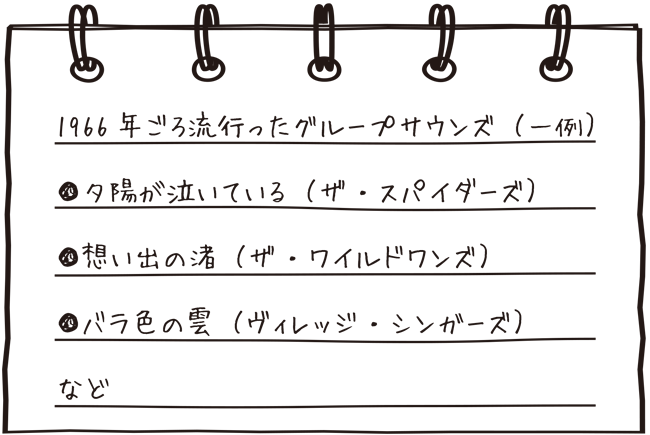 1966年ごろ流行ったグループサウンズ（一例）
●夕陽が泣いている（ザ・スパイダーズ）
●想い出の渚（ザ・ワイルドワンズ）
●バラ色の雲（ヴィレッジ・シンガーズ）
など